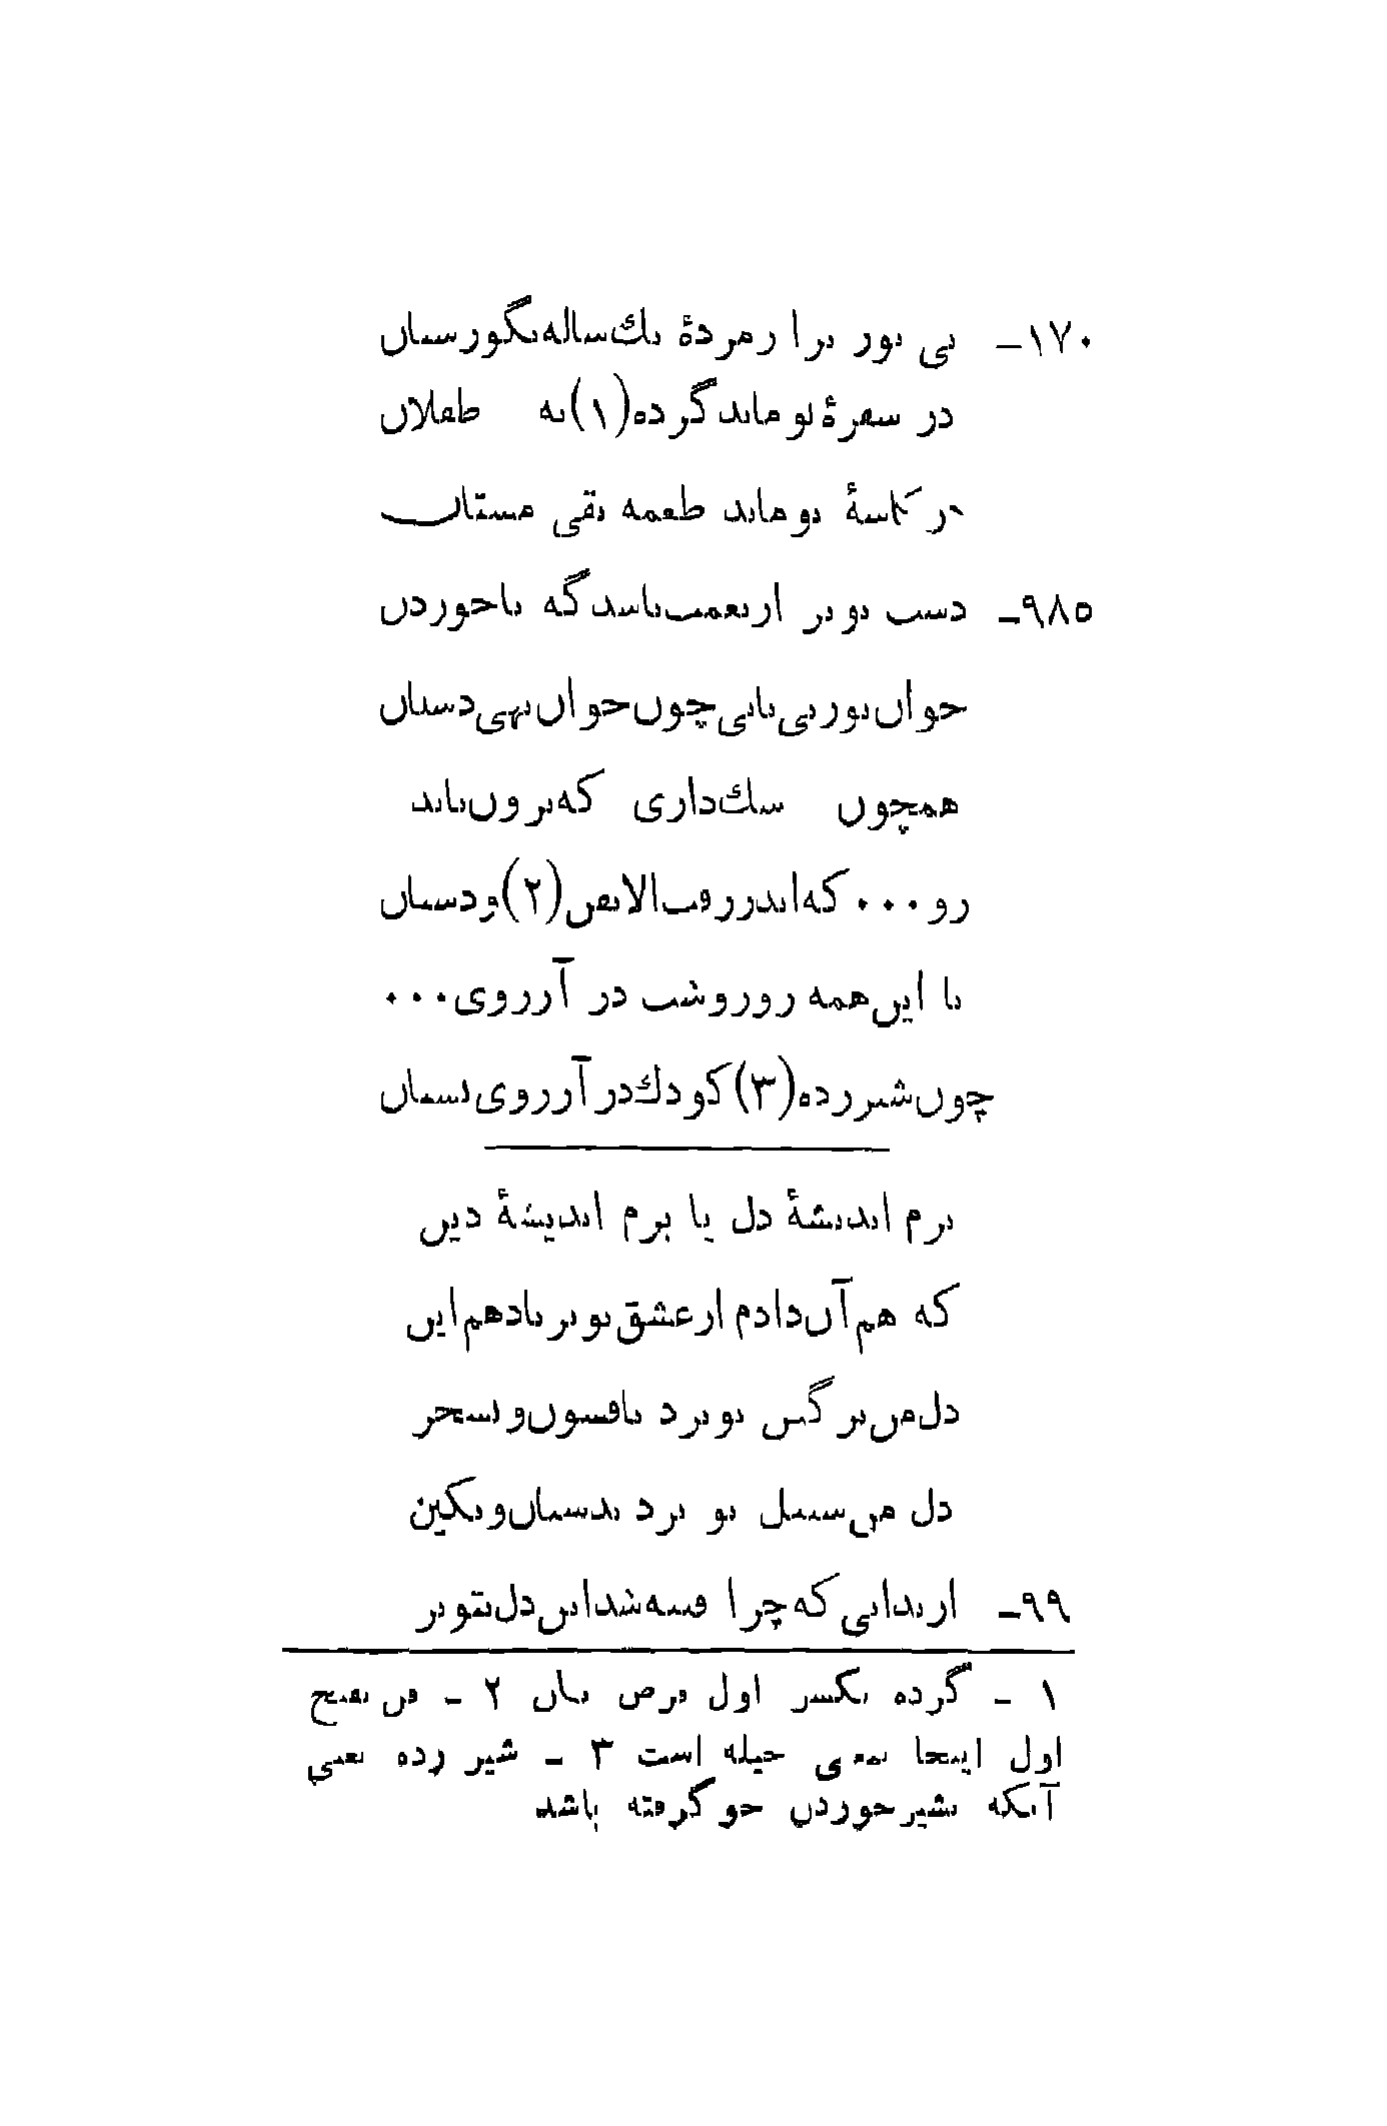 ۱۷۰ـ بی نور ترا ز مردهٔ یك ساله بگورستان
در سفرهٔ تو ماند گرده (۱) به طفلان
در کاسهٔ تو ماند طعمه بقی مستان
۹۸۵ـ دست تو بر از نعمت باشد گه ناخوردن
خوان تو ز بی نانی چون خوان تهی دستان
همچون سك داری که برون باید
رو ... که اندر رفت الا بفن (۲) و دستان
با این همه روز و شب در آرزوی ...
چون شیر زده (۳) کودك در آرزوی پستان
برم اندیشهٔ دل یا برم اندیشهٔ دین
که هم آن دادم از عشق تو بر باد هم این
دل من نرگس تو برد بافسون و بسحر
دل من سنبل تو برد بدستان و بکین
۹۹ـ از بدانی که چرا فتنه شد این دل بتو بر
۱ ـ گرده بکسر اول قرص نان ۲ ـ فن بفتح
اول اینجا بمعنی حیله است ۳ ـ شیر زده یعنی
آنکه بشیر خوردن خو گرفته باشد